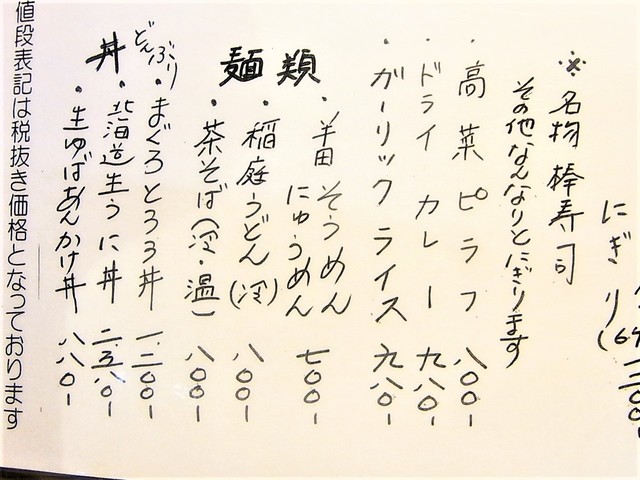 にぎり
※名物 棒寿司
その他なんなりとにぎります
・高菜ピラフ 八〇〇-
・ドライカレー 九八〇-
・ガーリックライス 九八〇-
麺類
・半田そうめん
にゅうめん 七〇〇-
・稲庭うどん(冷) 八〇〇-
・茶そば(冷・温) 八〇〇-
どんぶり
丼
・まぐろとろろ丼 一.二〇〇-
・北海道生うに丼
・生ゆばあんかけ丼 八八〇-
値段表記は税抜き価格となっております